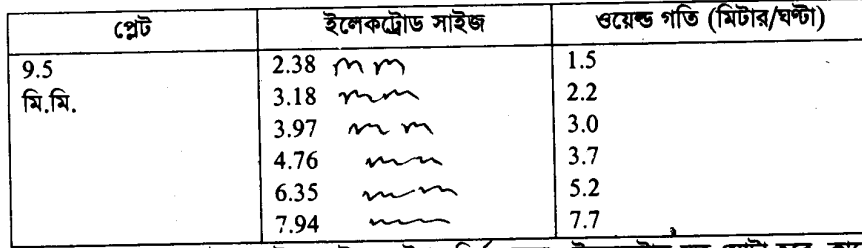 প্লেট ইলেকট্রোড সাইজ ওয়েল্ড গতি (মিটার/ঘণ্টা)
9.5 2.38 mm 1.5
মি.মি. 3.18 mm 2.2
3.97 mm 3.0
4.76 mm 3.7
6.35 mm 5.2
7.94 mm 7.7